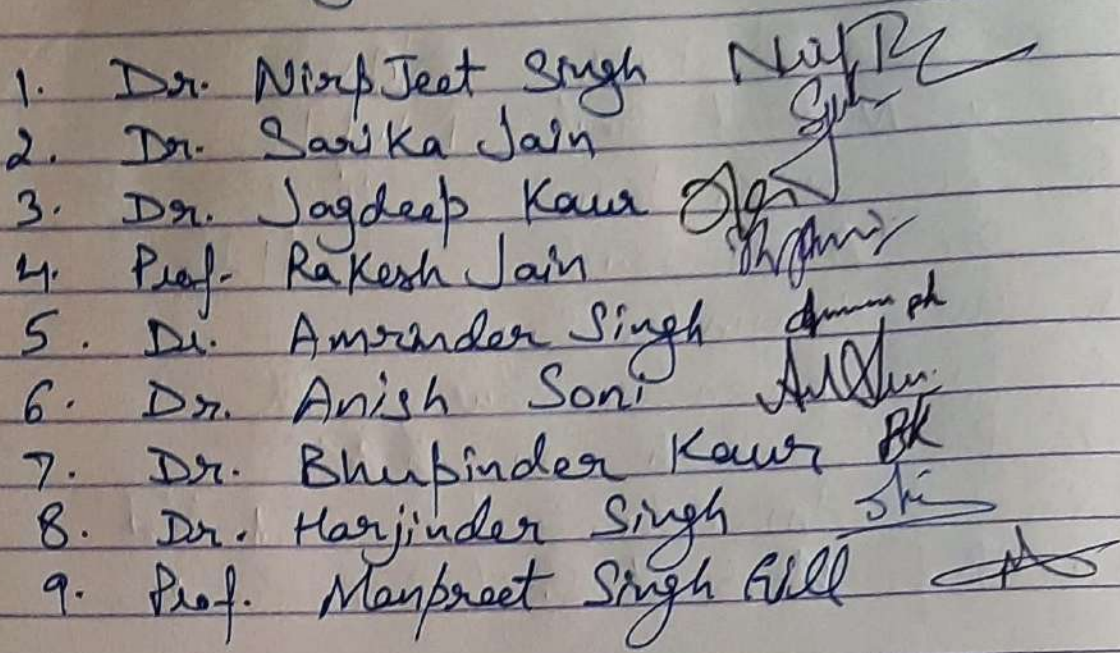 1. Dr. NirpJeet Singh
2. Dr. Sarika Jain
3. Dr. Jagdeep Kaur
4. Prof. Rakesh Jain
5. Dr. Amrinder Singh
6. Dr. Anish Soni
7. Dr. Bhupinder Kaur BK
8. Dr. Harjinder Singh
9. Prof. Manpreet Singh Gill